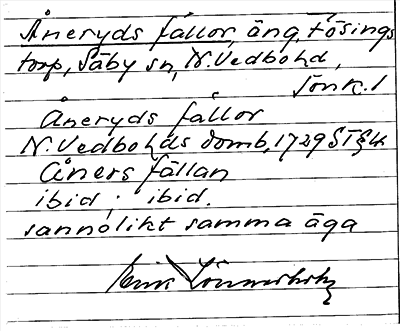 Åneryds fållor, äng, Fösings
torp, Säby sn, N. Vedbohd,
Jönk. l
Åneryds fållor
N. Vedbohds domb, 1729 ST § 4
Åners fållan
ibid, ibid.
sannolikt samma äga